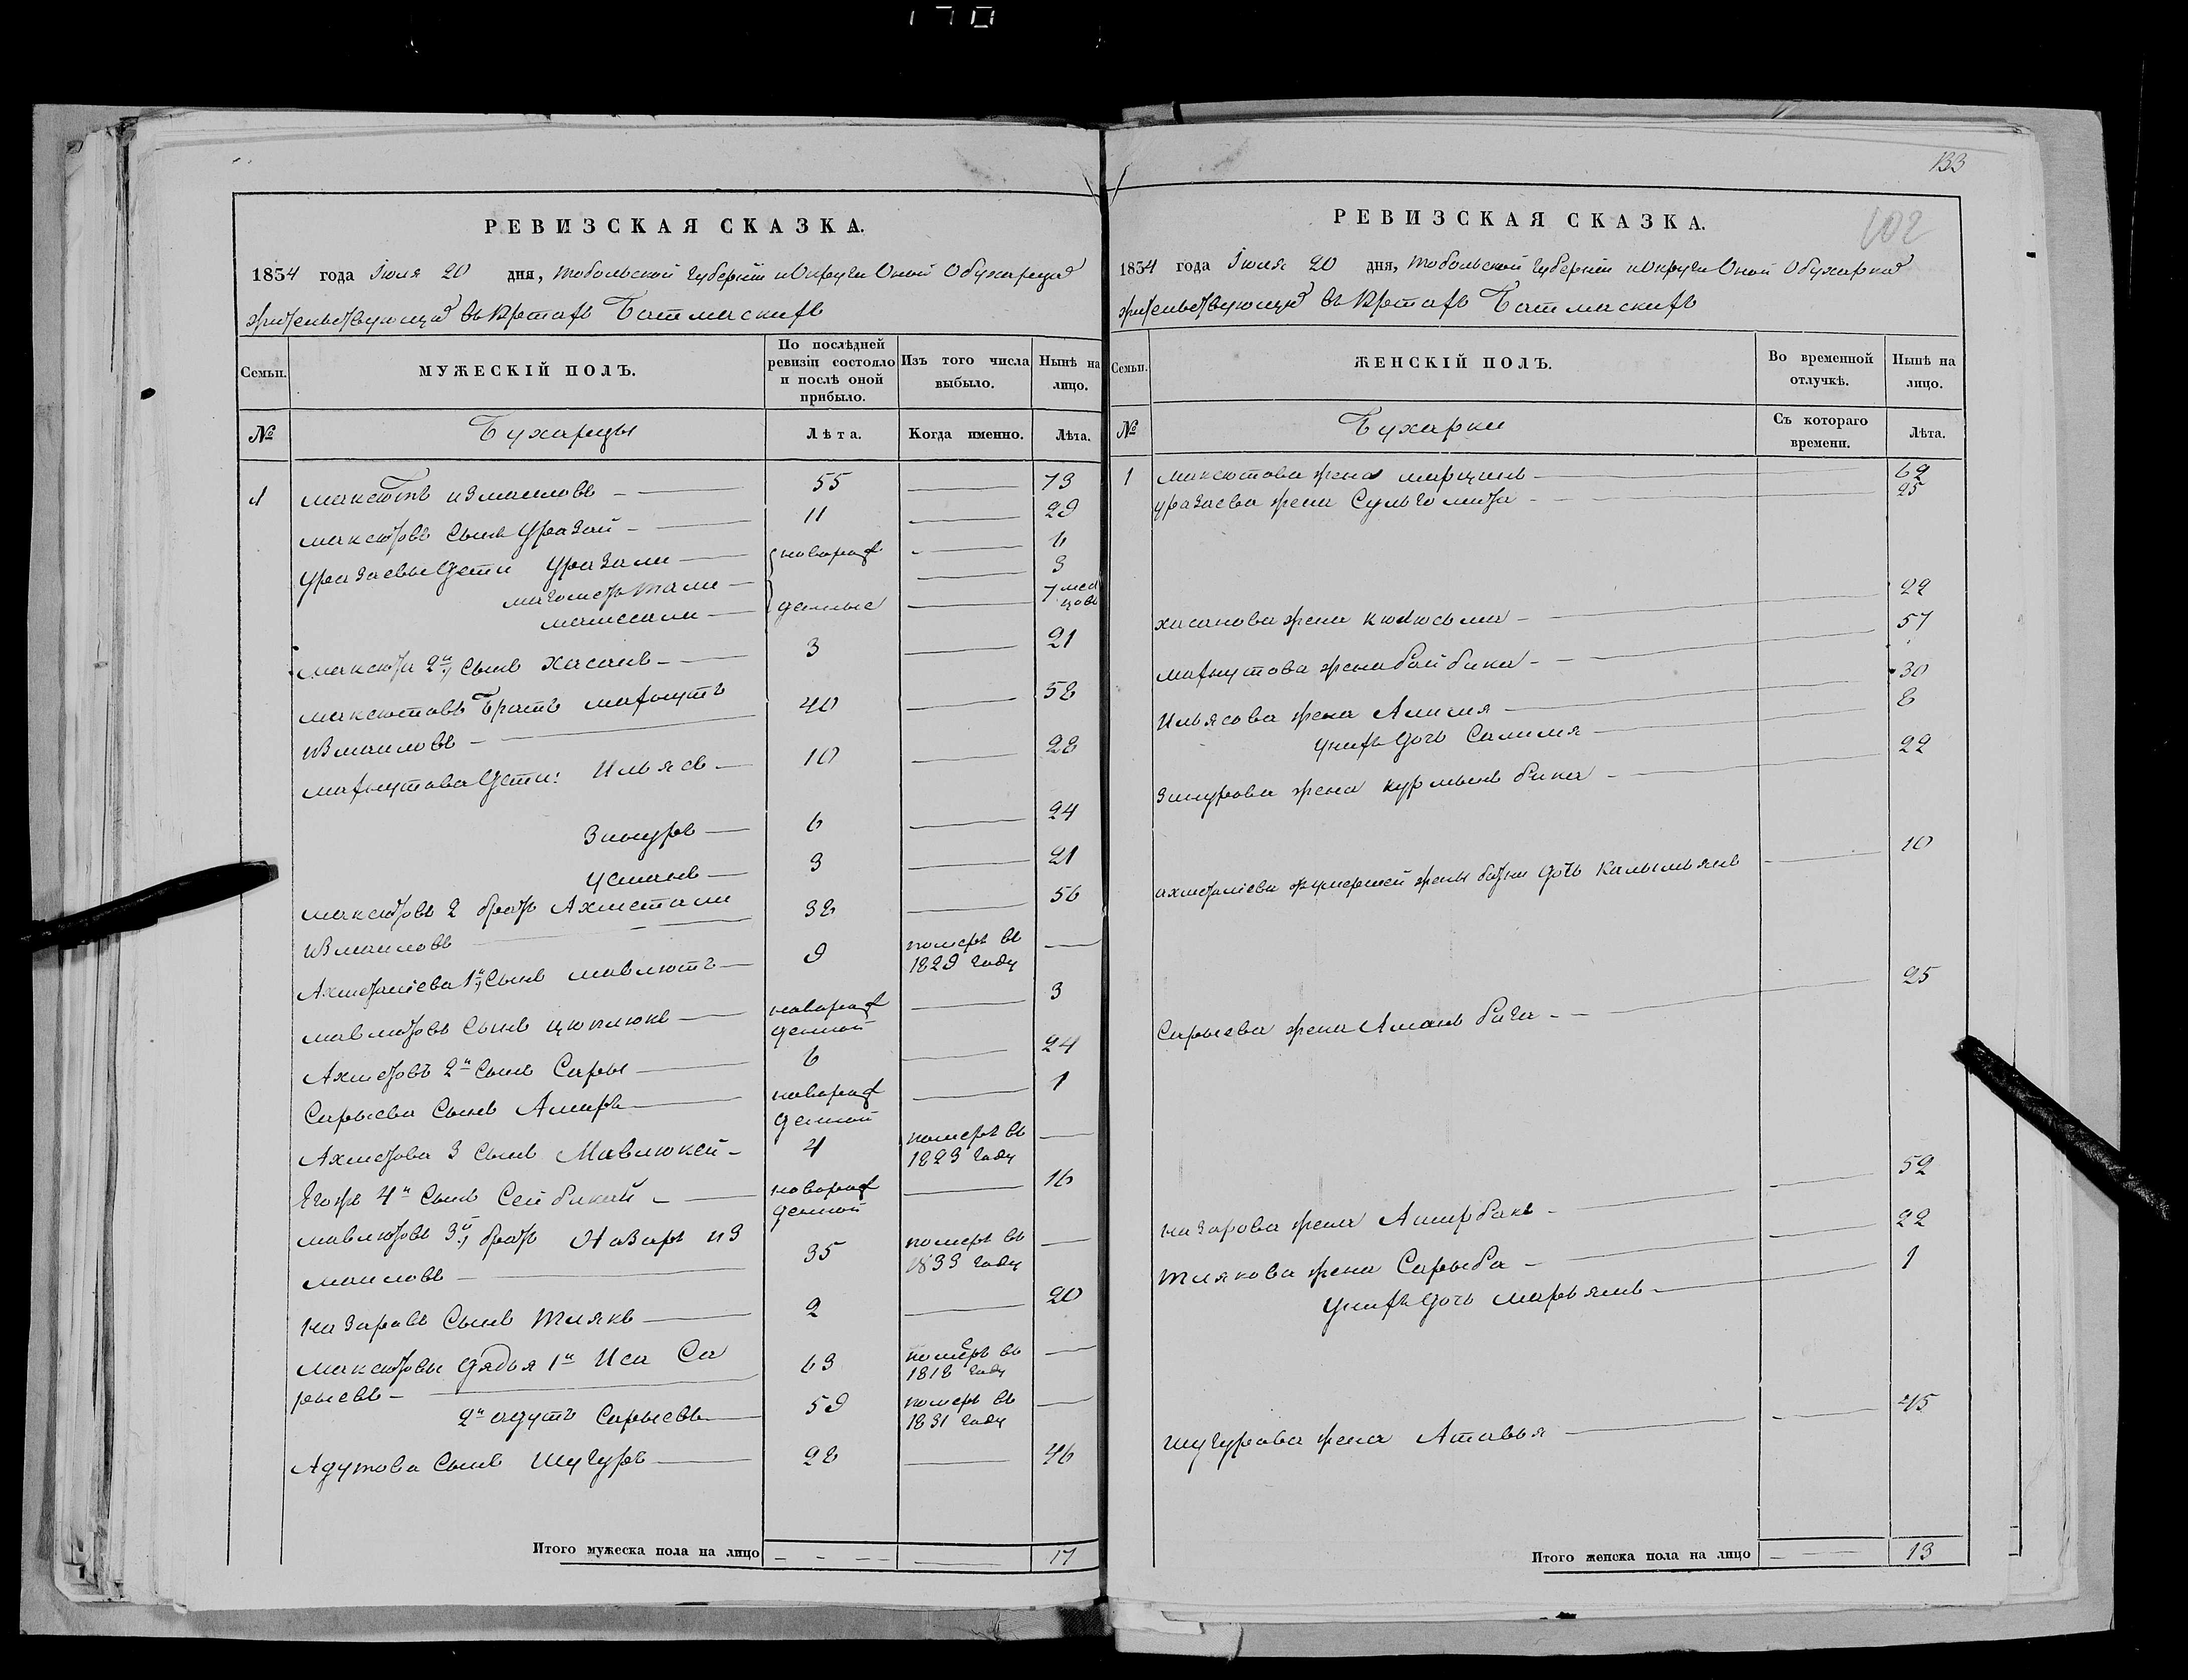 170
РЕВИЗСКАЯ СКАЗКА.
1834 года Іюля 20 дня, Тобольской Губерніи и Округи Оной О бухарцахъ
жительствующихъ въ Юртахъ
МУЖЕСКІЙ ПОЛЪ.
Семьи. По послѣдней ревизіи состояло и послѣ оной прибыло. Изъ того числа выбыло. Нынѣ на лицо.
№ Бухарцы Лѣта. Когда именно. Лѣта.
1 Максютъ Измаиловъ 55 — 73
Максютовъ Сынъ Уразай 11 — 29
Уразаевы Дети Уразали новорож — 6
Магометъ Тали — 3
Мамесали денные — 7 меся цовъ
Максюта 2й Сынъ Хасанъ 3 — 21
Максютовъ Братъ Махмутъ 40 — 58
Измаиловъ
Махмутова Дети: Ильясъ 10 — 28
Зинуръ 6 — 24
Усманъ 3 — 21
Максютовъ 2 братъ Ахметали 38 — 56
Измаиловъ
Ахметаліева 1й Сынъ Мавлютъ 9 померъ въ 1829 году —
Мавлютовъ Сынъ новорож денной — 3
Ахметовъ 2й Сынъ Сары 6 — 24
Сарыева Сынъ Амиръ новорож денной — 1
Ахметова 3 Сынъ Мавлюкей 4 померъ въ 1823 году —
Егожъ 4й Сынъ Сейбакай новорож денной — 16
Мавлютовъ 3й братъ Назаръ Из 35 померъ въ 1833 году —
маиловъ
Назаровъ Сынъ Тлякъ 2 — 20
Максютовы Дядья 1й Иса Са 63 померъ въ 1818 году —
рыевъ
2й Адутъ Сарыевъ 59 померъ въ 1831 году —
Адутова Сынъ Шугуръ 28 — 46
Итого мужеска пола на лицо — — 17
133
102
РЕВИЗСКАЯ СКАЗКА.
1834 года Іюля 20 дня, Тобольской Губерніи и Округи Оной О бухаркахъ
жительствующихъ въ Юртахъ
Семьи. ЖЕНСКІЙ ПОЛЪ. Во временной отлучкѣ. Нынѣ на лицо.
№ Бухарки Съ котораго времени. Лѣта.
1 Максютова жена — 62
Уразаева жена — 25
Хасанова жена — 22
Махмутова жена Байбика — 57
Ильясова жена Алимя — 30
Унихъ Дочь Салимя — 8
Зинурова жена Курманъ бика — 22
Ахметаліева умершей жены Дочь — 10
Сарыева жена Аманъ — 25
Назарова жена — 52
Тлякова жена Сарыба — 22
Унихъ Дочь Марьямъ — 1
Шугурова жена Атавья — 45
Итого женска пола на лицо — 13